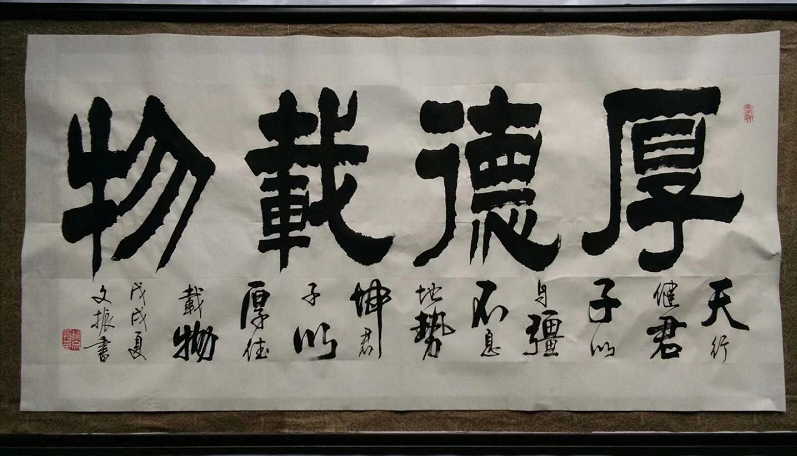 厚德載物
天行
健君
子以
自彊
不息
地勢
坤君
子以
厚德
載物
戊戌夏
文振書